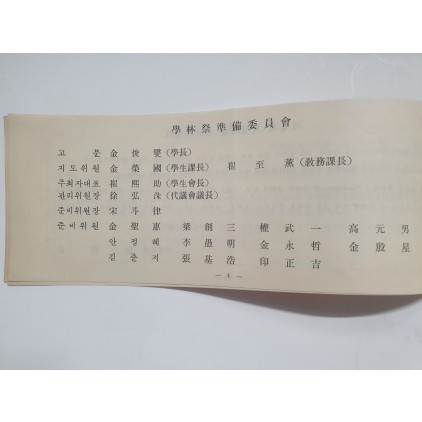 學林祭準備委員會
고 문 金俊燮 (學長)
지도위원 金榮國 (學生課長) 崔至薰 (敎務課長)
주최자대표 崔熙助 (學生會長)
관리위원장 徐弘洙 (代議會議長)
준비위원장 宋斗律
준비위원 金聖惠 葉創三 權武一 高元男
안정혜 李愚明 金永哲 金殷星
김춘지 張基浩 印正吉
— 4 —